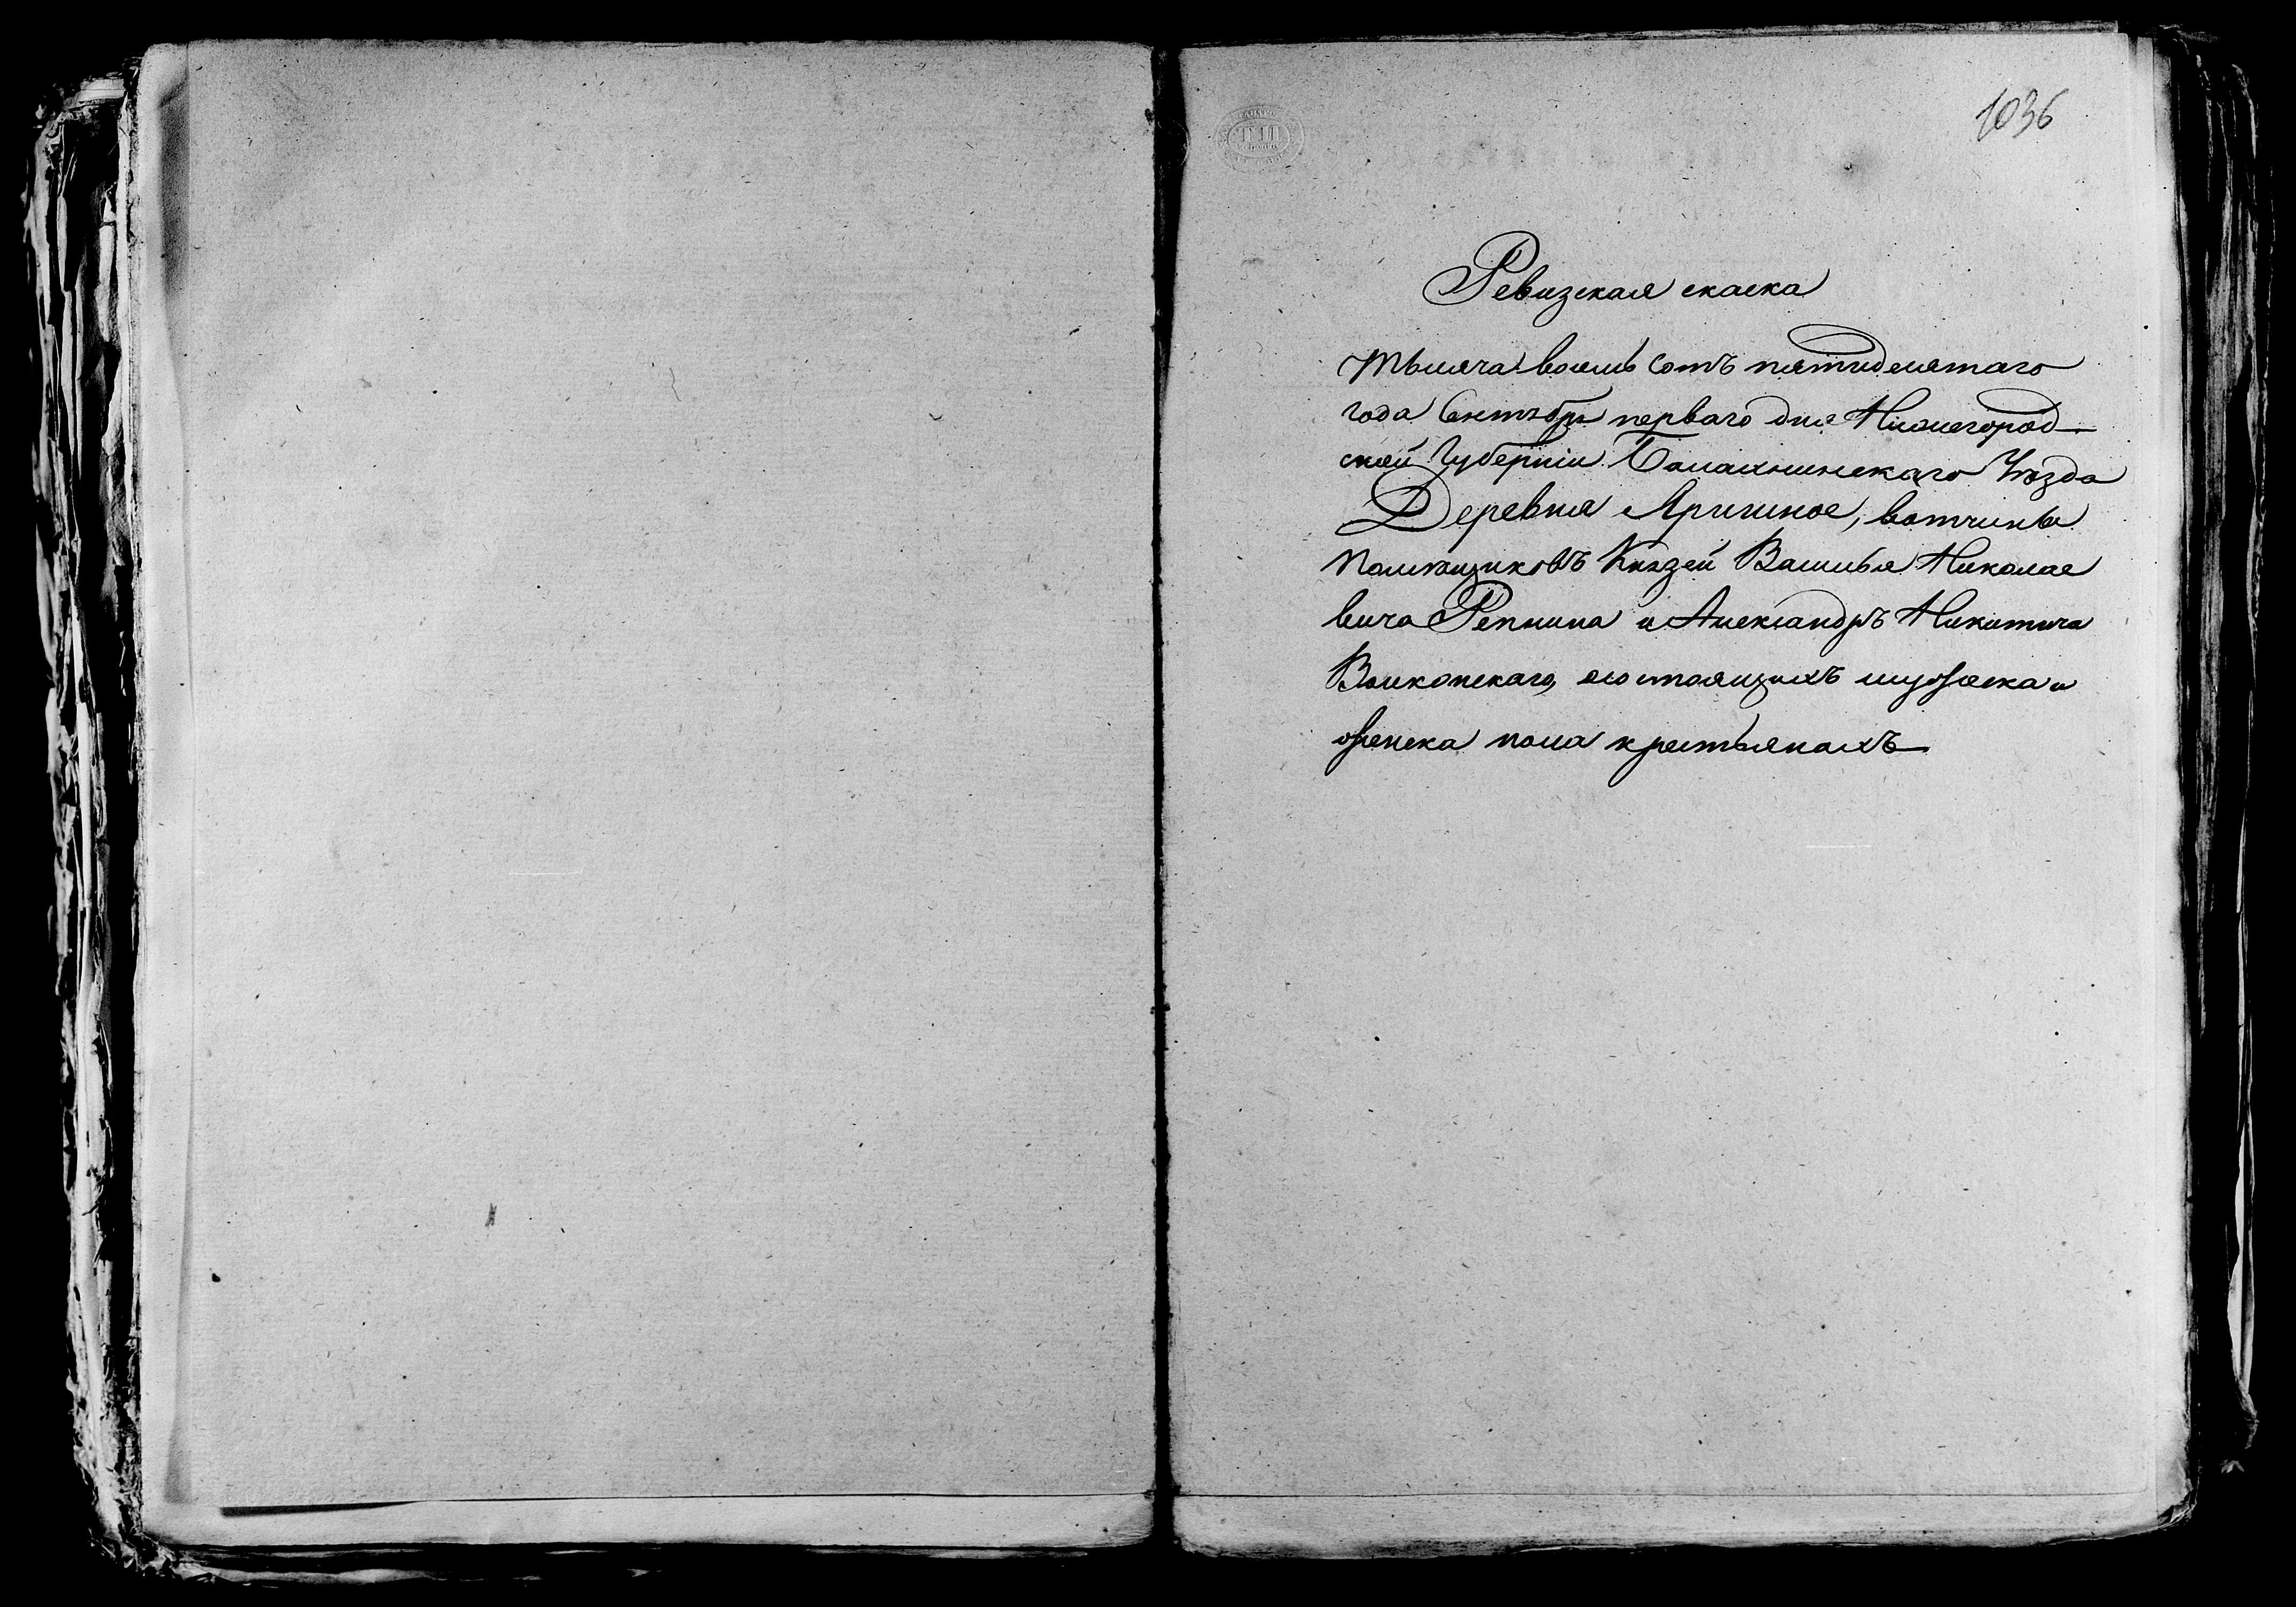 1036
Ревизская скаска
тысяча восемь сотъ пятидесятаго
года Сентября перваго дня Нижегород-
ской Губерніи Балахнинскаго Уѣзда
Деревня Яришное, вотчины
помѣщиковъ Князей Василья Николае
вича Репнина и Александръ Никитича
Волконскаго, состоящихъ мужеска и
женска пола крестьянахъ